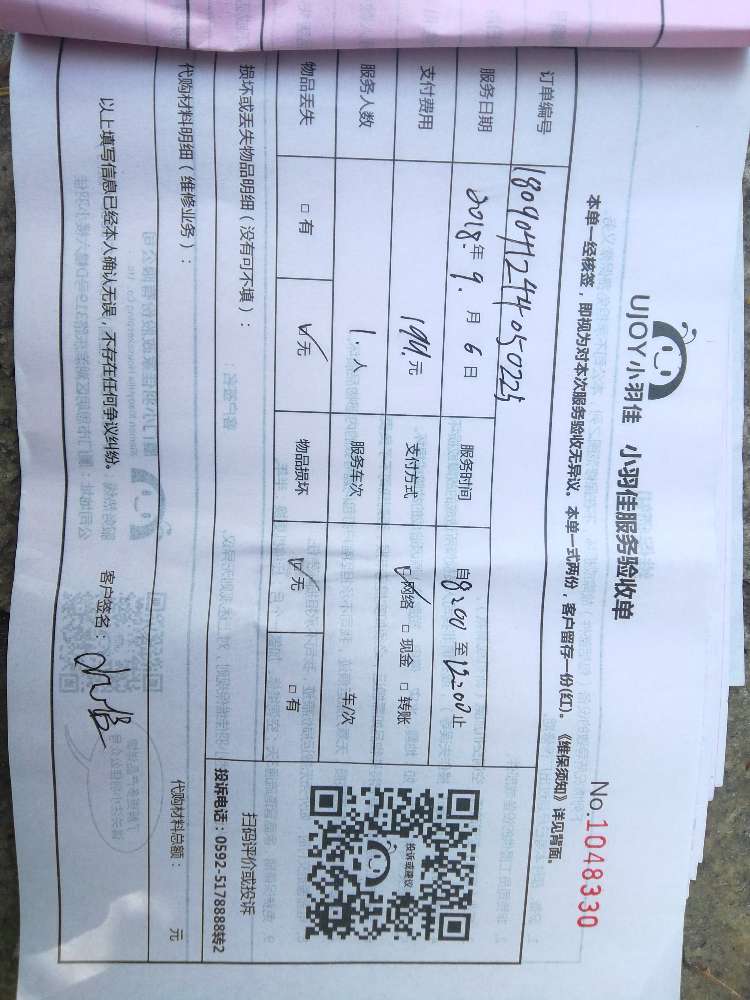 UJOY小羽佳 小羽佳服务验收单
No.1048330
本单一经核签，即视为对本次服务验收无异议。本单一式两份，客户留存一份(红)。《维保须知》详见背面。
订单编号 1809041244050225
服务日期 2018.年 9.月 6日 服务时间 自8:00至12:00止
支付费用 199.元 支付方式 ☑网络 □现金 □转账
服务人数 1.人 服务车次 车/次
物品丢失 □有 ☑无 物品损坏 ☑无 □有
投诉或建议
扫码评价或投诉
投诉电话：0592-5178888转2
损坏或丢失物品明细（没有可不填）：
代购材料明细（维修业务）：
代购材料总额： 元
以上填写信息已经本人确认无误，不存在任何争议纠纷。 客户签名：